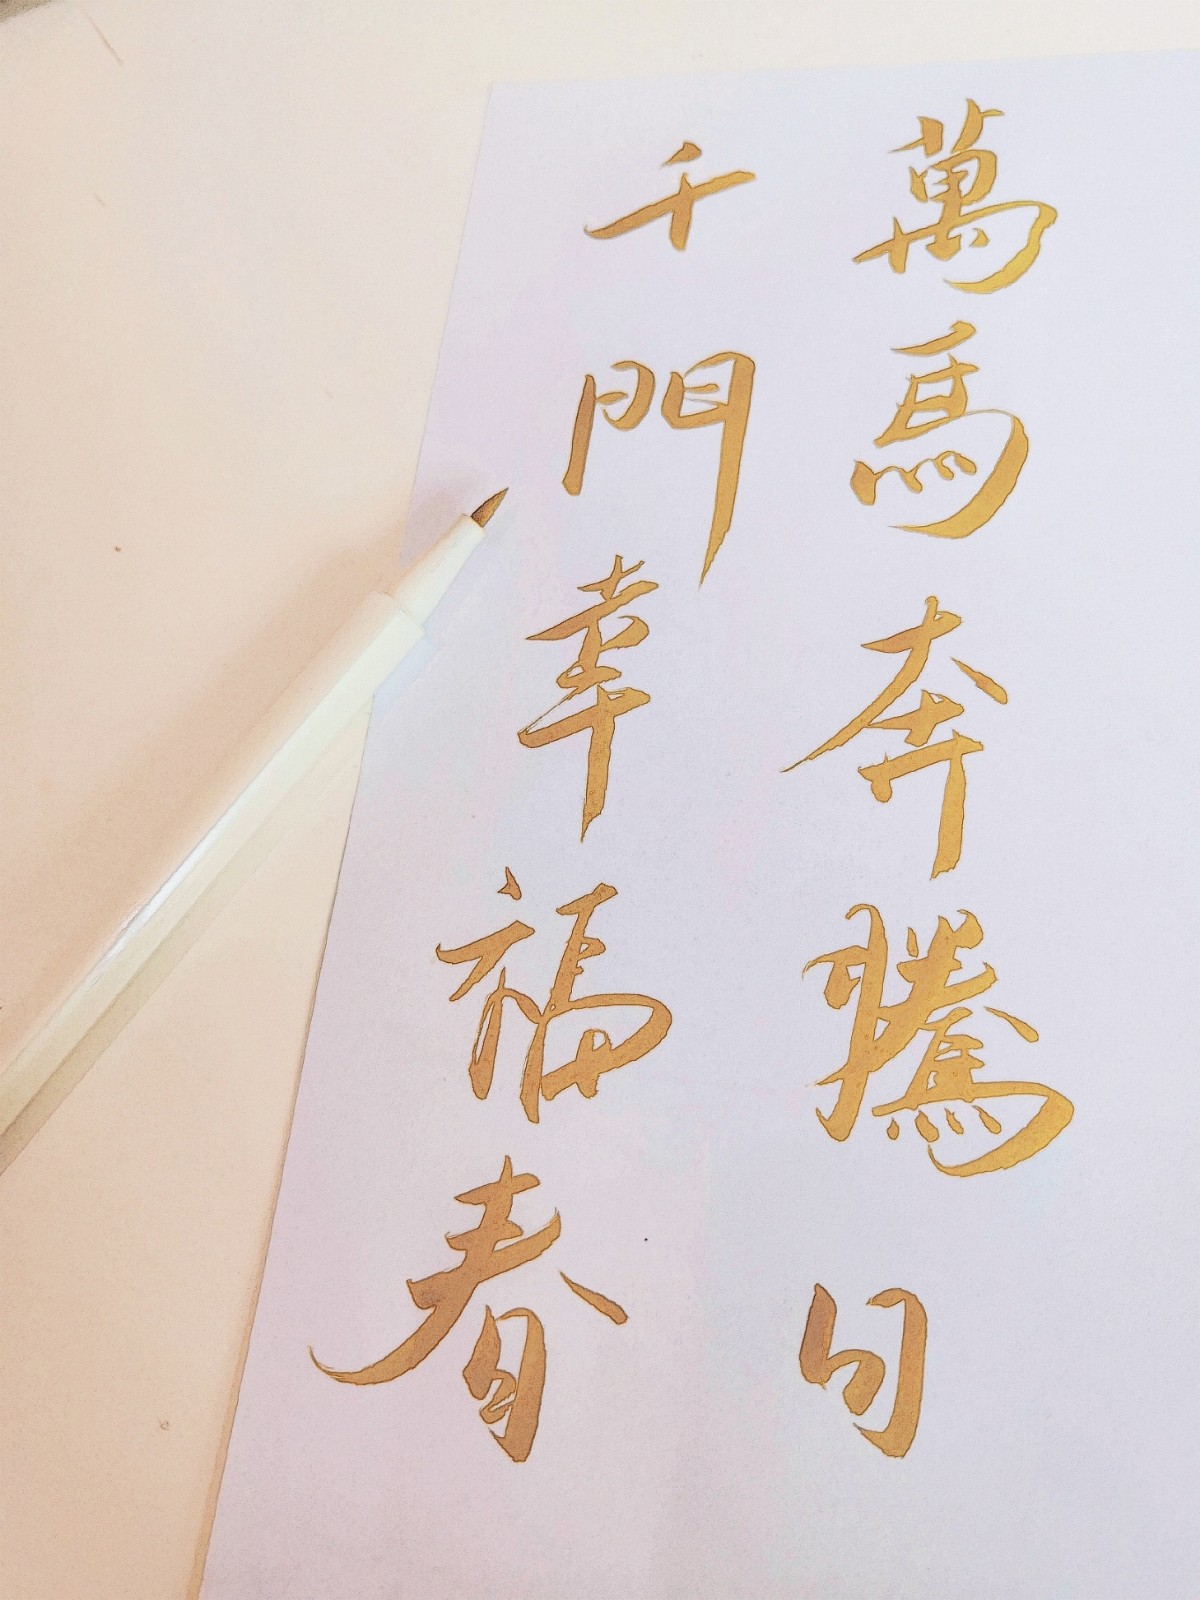 萬馬奔騰日
千門幸福春